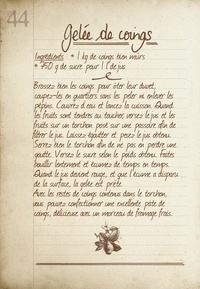 44
Gelée de coings
Ingrédients : * 1 kg de coings bien mûrs
* 750 g de sucre pour 1 l de jus
Brossez bien les coings pour ôter leur duvet,
coupez-les en quartiers sans les peler ni enlever les
pépins. Couvrez d'eau et lancez la cuisson. Quand
les fruits sont tendres au toucher, versez le jus et les
fruits sur un torchon posé sur une passoire afin de
filtrer le jus. Laissez égoutter et pesez le jus obtenu.
Serrez bien le torchon afin de ne pas en perdre une
goutte. Versez le sucre selon le poids obtenu. Faites
bouillir lentement et écumez de temps en temps.
Quand le jus devient rouge, et que l'écume a disparu
de la surface, la gelée est prête.
Avec les restes de coings contenus dans le torchon,
vous pouvez confectionner une excellente pâte de
coings, délicieuse avec un morceau de fromage frais.